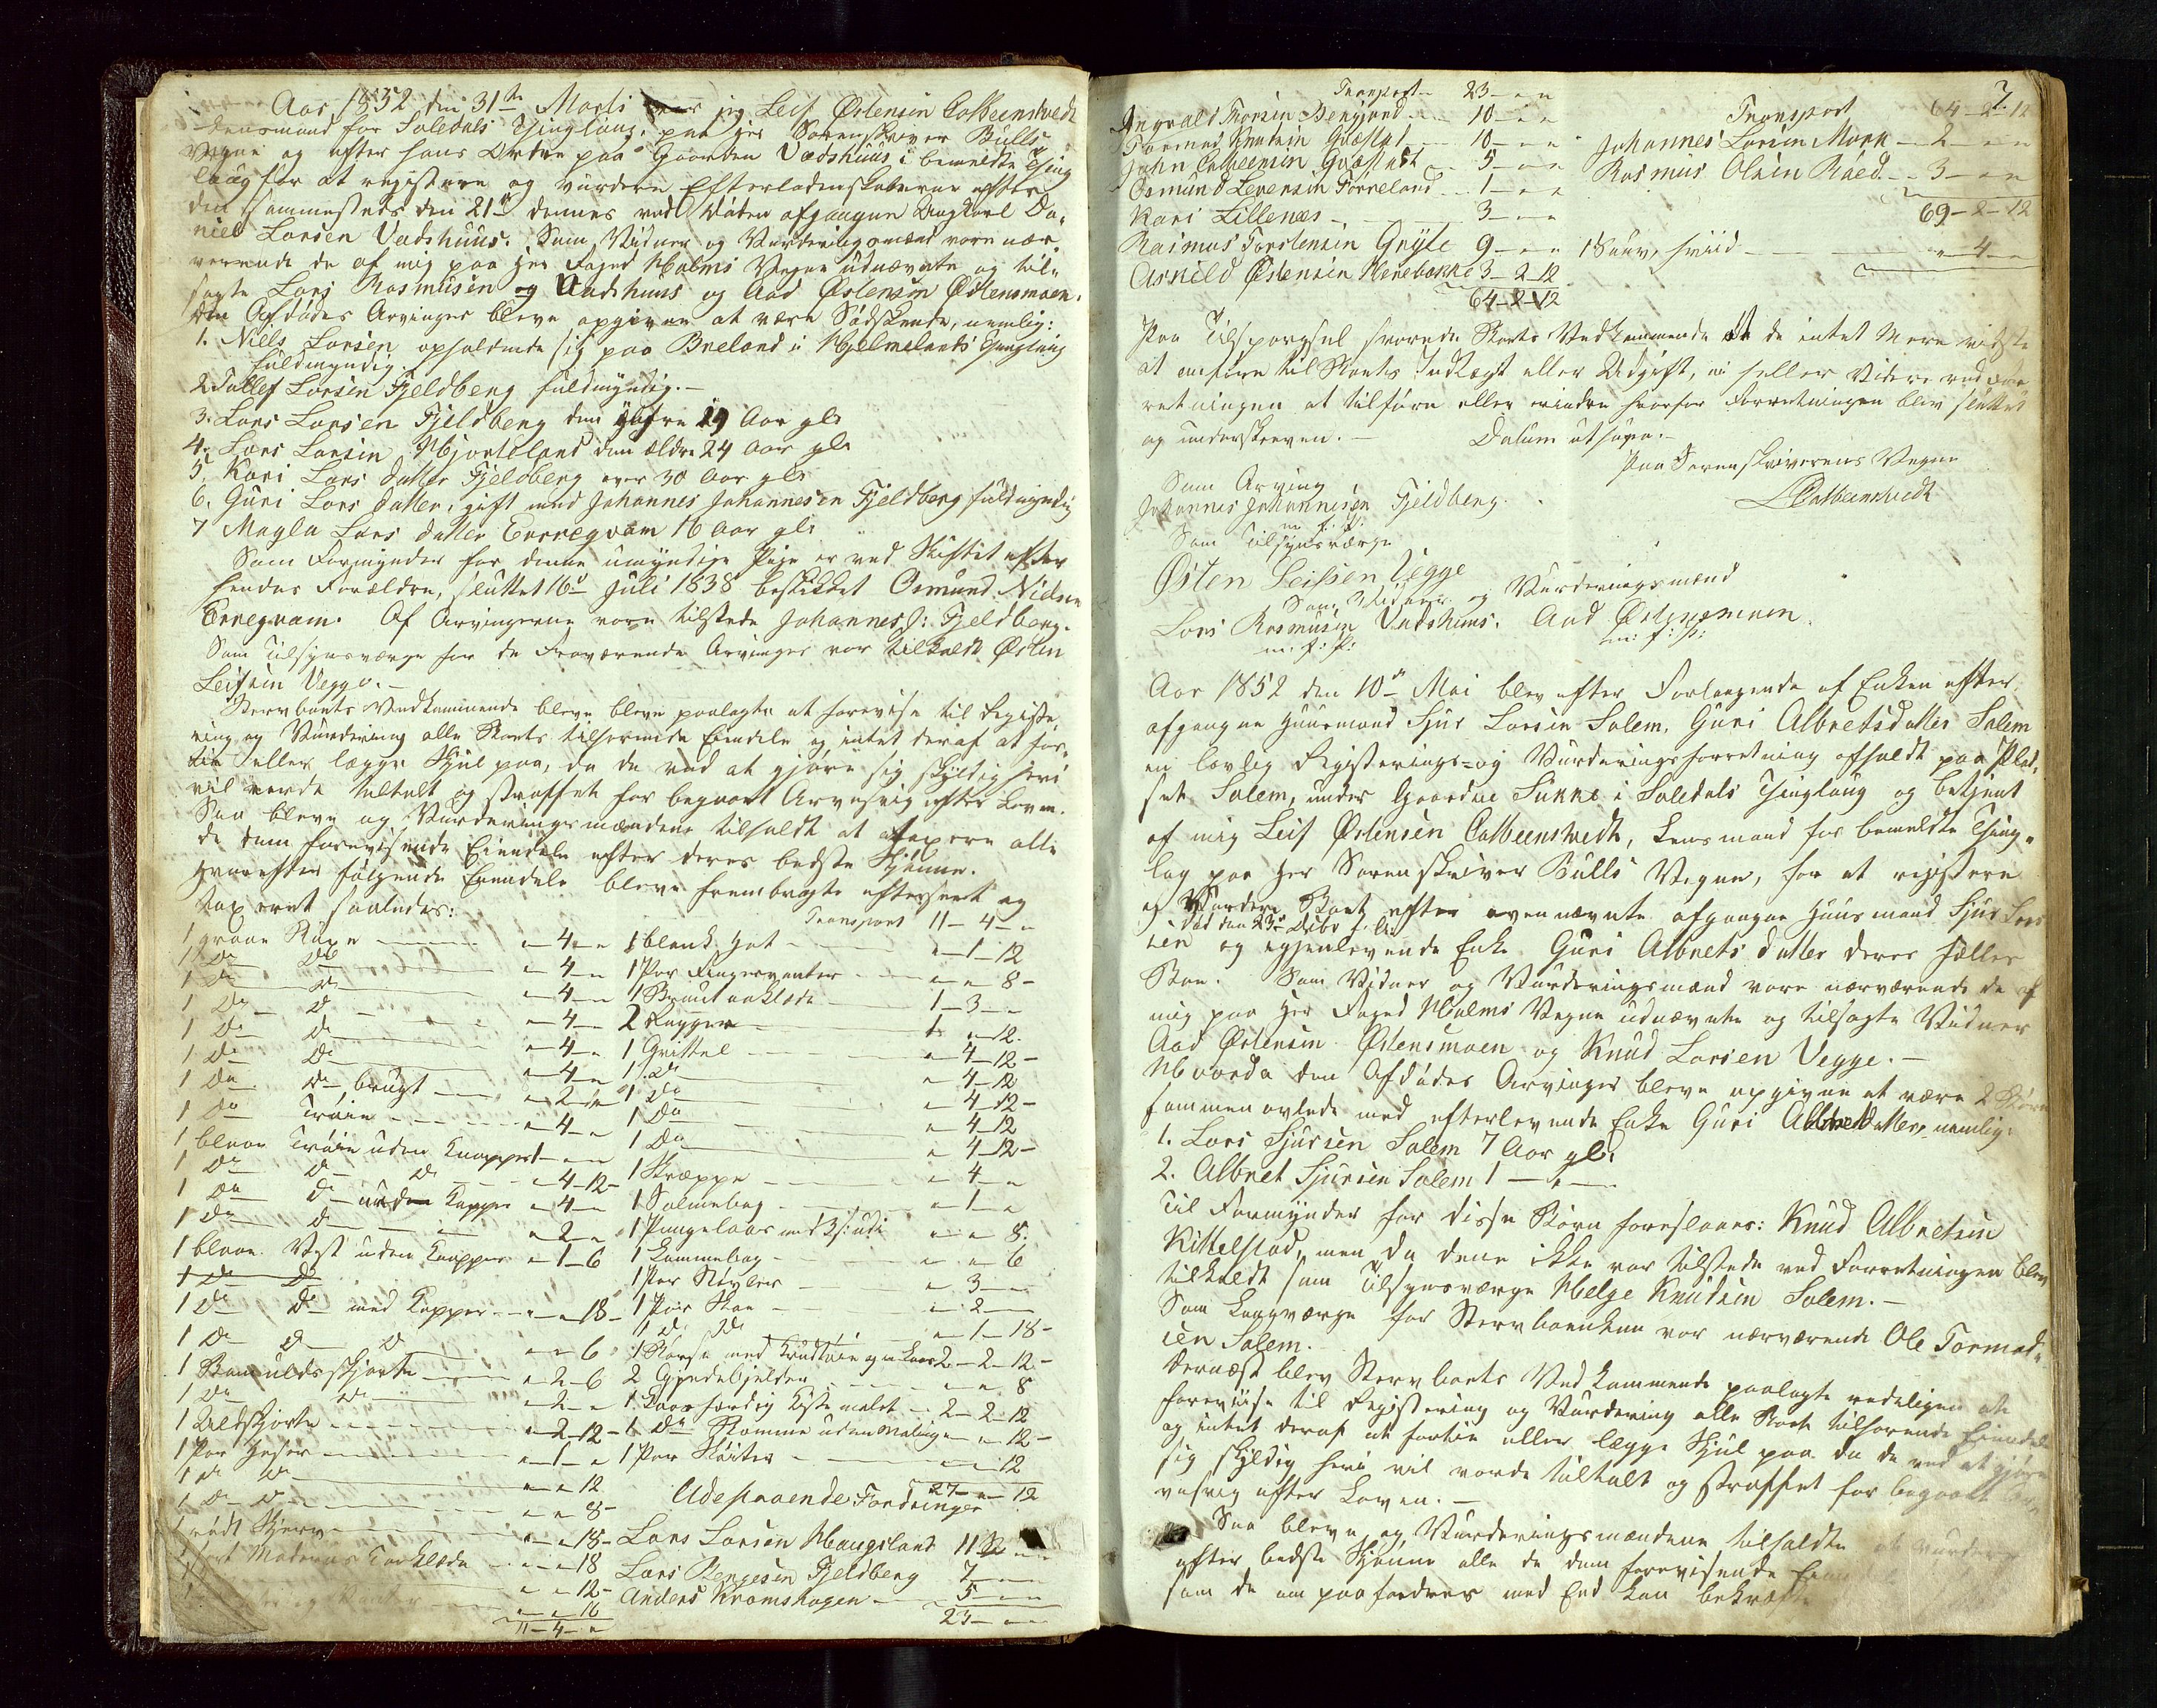 Aar 1852 den 31te Marts var jeg Leif Østensen Colbeenstvedt
Lensmand for Suledals Thinglaug, paa Hr Sorenskriver Bulls
Vegne og efter hans Ordre paa Gaarden Vadshuus i bemeldte Thing
laug for at registrere og vurdere Efterladenskaberne efter
den sammesteds den 21de dennes ved Døden afgangne Ungkarl Da-
niel Larsen Vadshuus. Som Vidner og Vurderingsmænd vare nær-
værende de af mig paa Hr Foged Holms Vegne udnævnte og til-
sagte Lars Rasmusen Vadshuus og Aad Østensen Østensmoen.
Den Afdødes Arvinger bleve opgivne at være Sødskende, nemlig:
1. Niels Larsen opholdende sig paa Breland i Hjelmelands Thinglaug
fuldmyndig.
2 Tollef Larsen Fjeldberg fuldmyndig.
3. Lars Larsen Fjeldberg den yngre 19 Aar gl:
4. Lars Larsen Hjorteland den ældre 24 Aar gl:
5. Kari Lars datter Fjeldberg over 30 Aar gl:
6. Guri Lars datter, gift med Johannes Johannesen Fjeldberg fuldmyndig
7 Magla Lars datter Erregvam 16 Aar gl:
Som Formynder for denne umyndige Pige er ved Skiftet efter
hendes Forældre, sluttet 16de Juli 1838 beskikket Osmund Nielsen
Erregvam. Af Arvingerne vare tilstede Johannes J: Fjeldberg.
Som Tilsynsværge for de Fraværende Arvinger var tilkaldt Østen
Leifsen Vegge.
Stervboets Vedkommende bleve bleve paalagte at forevise til Registe-
ring og Vurdering alle Boets tilhørende Eiendele og intet deraf at for-
tie eller lægge Skjul paa, da de ved at gjøre sig skyldig heri
vil vorde tiltalt og straffet for begaaet Arvesvig efter Loven.
Saa bleve og Vurderingsmændene tilholdt at taxere alle
de dem forevisende Eiendele efter deres bedste Skjønne.
Hvorefter følgende Eiendele bleve frembragte efterseet og
taxeret saaledes:
Transport 11-4-"
1 graae Buxe "-4-" 1 blank Hat "-1-12
1 Do Do "-4-" 1 Par Fingervanter "-"-8-
1 Do Do "-4-" 1-3-"
1 Do Do "-4-" 2
1 Do Do "-4-" 1 Grittel "-4-12-
1 Do Do "-4-" 1 Do "-4-12
1 Do Do brugt "-2-" 1 Do "-4-12-
1 Do Trøie "-4-" 1 Do "-4-12
1 blaae Trøie uden Knapper 1-"-" 1 Do "-4-12-
1 Do Do Do "-4-12- 1 Skræppe "-4-"
1 Do Do uden Knapper "-4-" 1 Salmebog "-1-"
1 Do Do "-2-" 1 Pungelaas med 3s: udi "-"-8.
1 blaae Vest uden Knapper "-1-6 1 "-"-6
1 Do Do 1 Par Støvler "-3-"
1 Do Do med Knapper "-"-18- 1 Par Skoe "-2-"
1 Do Do Do "-"-6 1 Do Do "-1-18-
1 Bomuldsskjorte "-2-6 1 Børse med Krudthorn 2-2-12-
1 Do Do "-2-" 2 Gjedebjelder "-"-8
1 Uldskjorte "-2-12- 1 Kiste malet 2-2-12
1 Par Hoser "-1-" 1 Do Romme uden Maling "-"-12-
1 Do Do "-"-12 1 Par Skøiter "-"-12
1 Do Do "-"-8- 27-"-12
1 rødt Skjerv "-"-18-
Udestaaende Fordringer
Lars Larsen Haugsland 11
"-"-18 Lars Bengesen Fjeldberg 7-"-"
"-"-12- Anders Kromshagen 5-"-"
"-"-16
11-4-" 23-"-"
7.
Transport 23-"-"
Ingvald Thorsen Bergjord 10-"-"
Tormod Knutsen Gvæstad 10-"-"
John Colbeensen Gvæstad 5-"-"
Osmund Levensen Førreland 1-"-"
Kari Lillenæs 3-"-"
Rasmus Torstensen Gryte 9-"-"
Arnild Østensen Herebakke 3-2-12
64-2-12
Transport 64-2-12
Johannes Larsen Mork 2-"-"
Rasmus Olsen Raed 3-"-"
69-2-12
1 Sauv, hvid "-4-"
Paa Tilspørgsel svarede Boets Vedkommende at de intet Mere vidste
at anføre til Boets Indtægt eller Udgift, ei heller Videre ved For-
retningen at tilføre eller erindre hvorfor Forretningen blev sluttet
og underskreven.
Datum ut supra.
Paa Sorenskriverens Vegne
L Colbeenstvedt
Som Arving
Johannes Johannesen Fjeldberg
m. f. P.
Som Tilsynsværge
Østen Leifsen Vegge
Som Vidner og Vurderingsmænd
Lars Rasmusen Vadshuus. Aad Østensmoen.
m: f: P: m: f: P:
Aar 1852 den 10de Mai blev efter Forlangende af Enken efter
afgangne Huusmand Sjur Larsen Salem, Guri Albretsdatter Salem
en lovlig Registerings- og Vurderingsforretning afholdt paa Plad-
set Salem, under Gaarden Sukke i Suledals Thinglaug og betjent
af mig Leif Østensen Colbeenstvedt, Lensmand for bemeldte Thing-
lag paa Hr Sorenskriver Bulls Vegne, for at registere
og Vurdere Boet efter ovennævnte afgangne Huusmand Sjur Lar
død den 23de Debr f. A.
sen og igjenlevende Enke Guri Albrets datter deres fælles
Boe. Som Vidner og Vurderingsmænd vare nærværende de af
mig paa Hr Foged Holms Vegne udnævnte og tilsagte Vidner
Aad Østensen Østensmoen og Knud Larsen Vegge.
Hvorda den Afdødes Arvinger bleve opgivne at være 2 Børn
sammenavlede med efterlevende Enke Guri Albretsdatter, nemlig:
1. Lars Sjursen Salem 7 Aar gl:
2. Albret Sjursen Salem 1
Til Formynder for disse Børn foreslaaes: Knud Albretsen
Kittelstad, men da denne ikke var tilstede ved Forretningen blev
tilkaldt som Tilsynsværge Helge Knudsen Salem.
Som Laugværge for Stervboenken var nærværende Ole Tormod-
sen Salem.
Dernæst blev Stervboets Vedkommende paalagte redeligen at
forevise til Registering og Vurdering alle Boets tilhørende Eiendele
og intet deraf at fortie eller lægge Skjul paa da de ved at gjøre
sig skyldig heri vil vorde tiltalt og straffet for begaaet Ar-
vesvig efter Loven.
Saa bleve og Vurderingsmændene tilholdte at vurdere
efter bedste Skjønne alle de dem forevisende
som de om paafordres med Eed kan bekræfte